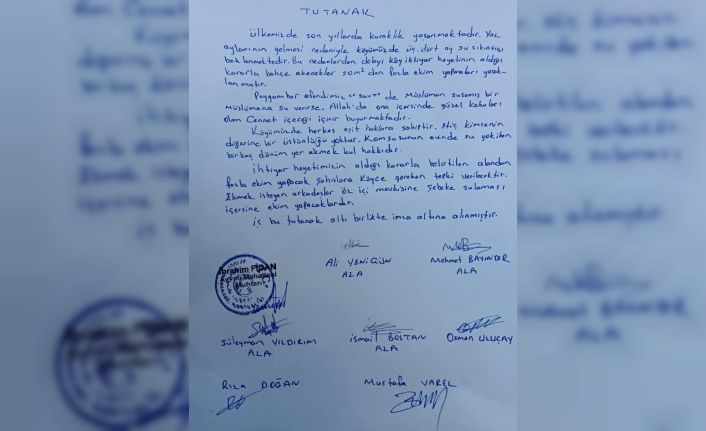 TUTANAK
Ülkemizde son yıllarda kuraklık yaşanmaktadır. Yaz
aylarının gelmesi nedeniyle köyümüzde üç, dört ay su sıkıntısı
beklenmektedir. Bu nedenlerden dolayı köy ihtiyar heyetinin aldığı
kararla bahçe ekecekler 50m² den fazla ekim yapmaları yasak-
lanmıştır.
Peygamber efendimiz "sav" de Müslüman susamış bir
müslümana su verirse, Allah'da ona içersinde güzel kokuları
olan Cennet içeceği içirir buyurmaktadır.
Köyümüzde herkes eşit haklara sahiptir. Hiç kimsenin
diğerine bir üstünlüğü yoktur. Komşusunun evinde su yokken
birkaç dönüm yer ekmek kul hakkıdır.
İhtiyar heyetimizin aldığı kararla belirtilen alandan
fazla ekim yapacak şahıslara köyce gereken tepki verilecektir.
Ekmek isteyen arkadaşlar öz içi mevkisine şebeke sulaması
içersine ekim yapacaklardır.
iş bu tutanak altı birlikte imza altına alınmıştır.
İbrahim FİDAN
Ayvalı Mahallesi
Muhtarı
Ali YENİGÜN
AZA
Mehmet BAYINDIR
AZA
Süleyman YILDIRIM
AZA
İsmail BOSTAN
AZA
Osman ULUÇAY
Rıza DOĞAN
Mustafa VAREL